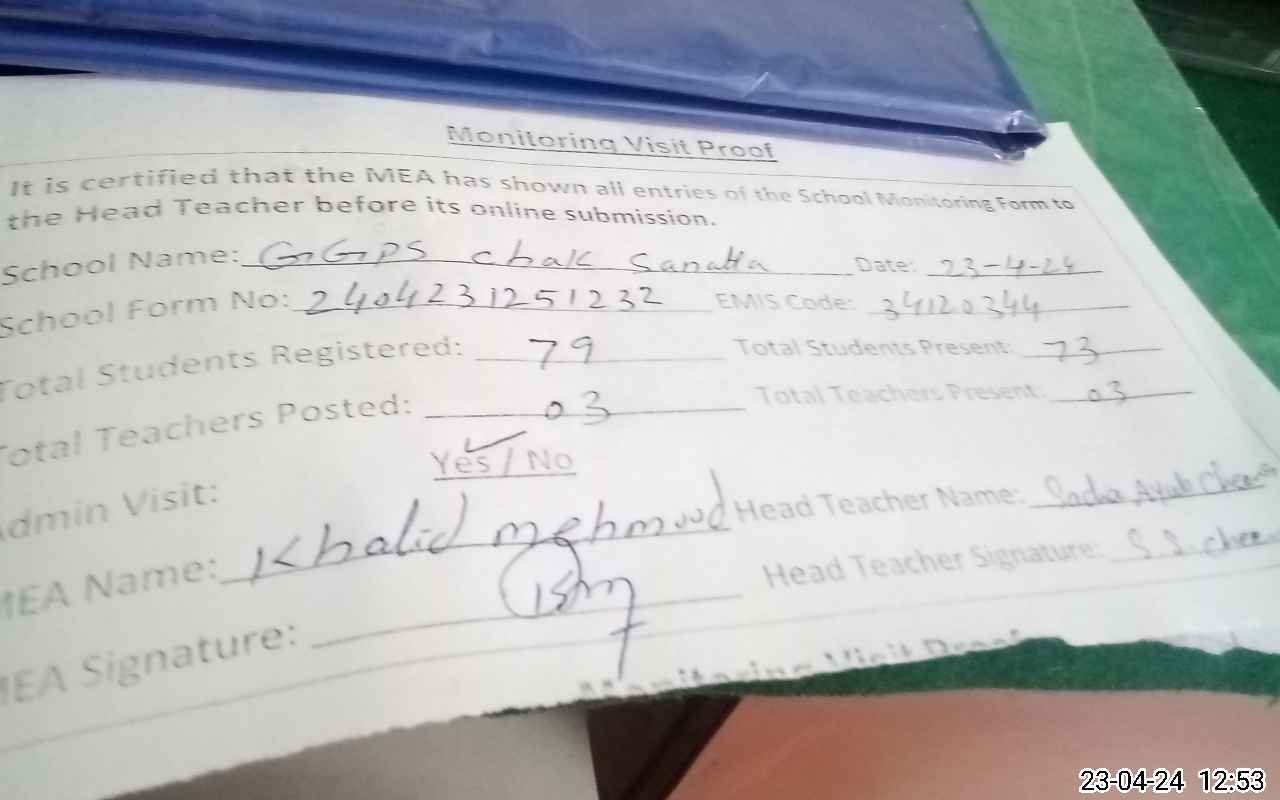 Monitoring Visit Proof
It is certified that the MEA has shown all entries of the School Monitoring Form to
the Head Teacher before its online submission.
School Name: GGPS chak Sanatta Date: 23-4-24
School Form No: 2404231251232 EMIS Code: 34120344
Total Students Registered: 79 Total Students Present: 73
Total Teachers Posted: 03 Total Teachers Present: 03
Admin Visit: Yes / No
MEA Name: Khalid mehmood Head Teacher Name: Sadia Ayub
MEA Signature: Head Teacher Signature: S.S. chee
Monitoring Visit Proof
23-04-24 12:53